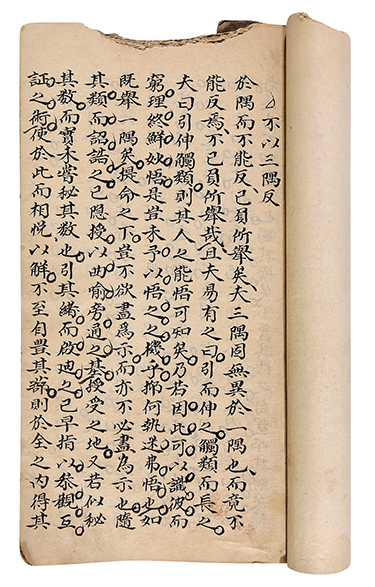 不以三隅反
於隅而不能反已負所舉矣夫三隅固無異於一隅也而竟不
能反焉不已負所舉哉且大易有之曰引而伸之觸類而長之
夫曰引伸觸類則其人之能悟可知矣乃若因此可以識彼而
窮理終鮮妙悟是豈未予以悟之之機乎抑何執迷弗悟也如
既舉一隅矣提命之下豈不欲盡為示而亦不必盡為示也隨
其類而詔誥之已恩授以曲喻旁通之基授受之地又若似秘
其数而實未嘗秘其数也引其緒而啟迪之已早指以參觀互
証之術使於此而相悅以解不至自畫其將則於全之內得其